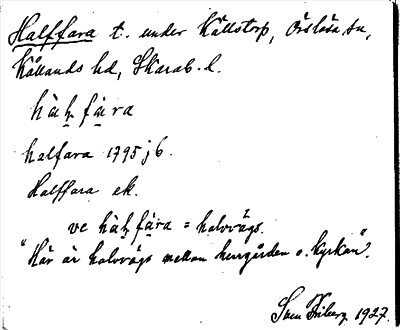 Halffara t. under Källstorp, Örslösa sn,
Kållands hd, Skarab. l.
hàḥ fà̠ra
halfara 1795 j b.
Halffara ek.
ve hàḥ fà̠ra = halvvägs.
"Här är halvvägs mellan herrgården o. kyrkan".
Sven 1927.